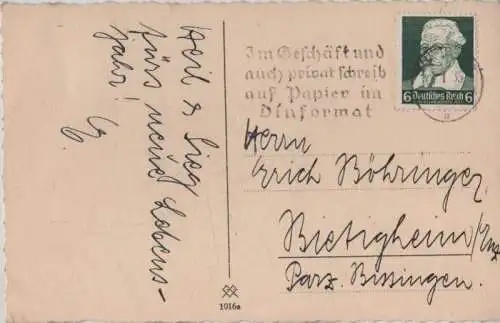 Heil & Sieg
fürs neue Lebens-
jahr!
Im Geschäft und
auch privat schreib
auf Papier im
Dinformat
6 Deutsches Reich 6
Herrn
Erich Böhringer,
Bietigheim/Enz
Parz. Bissingen.
1016a